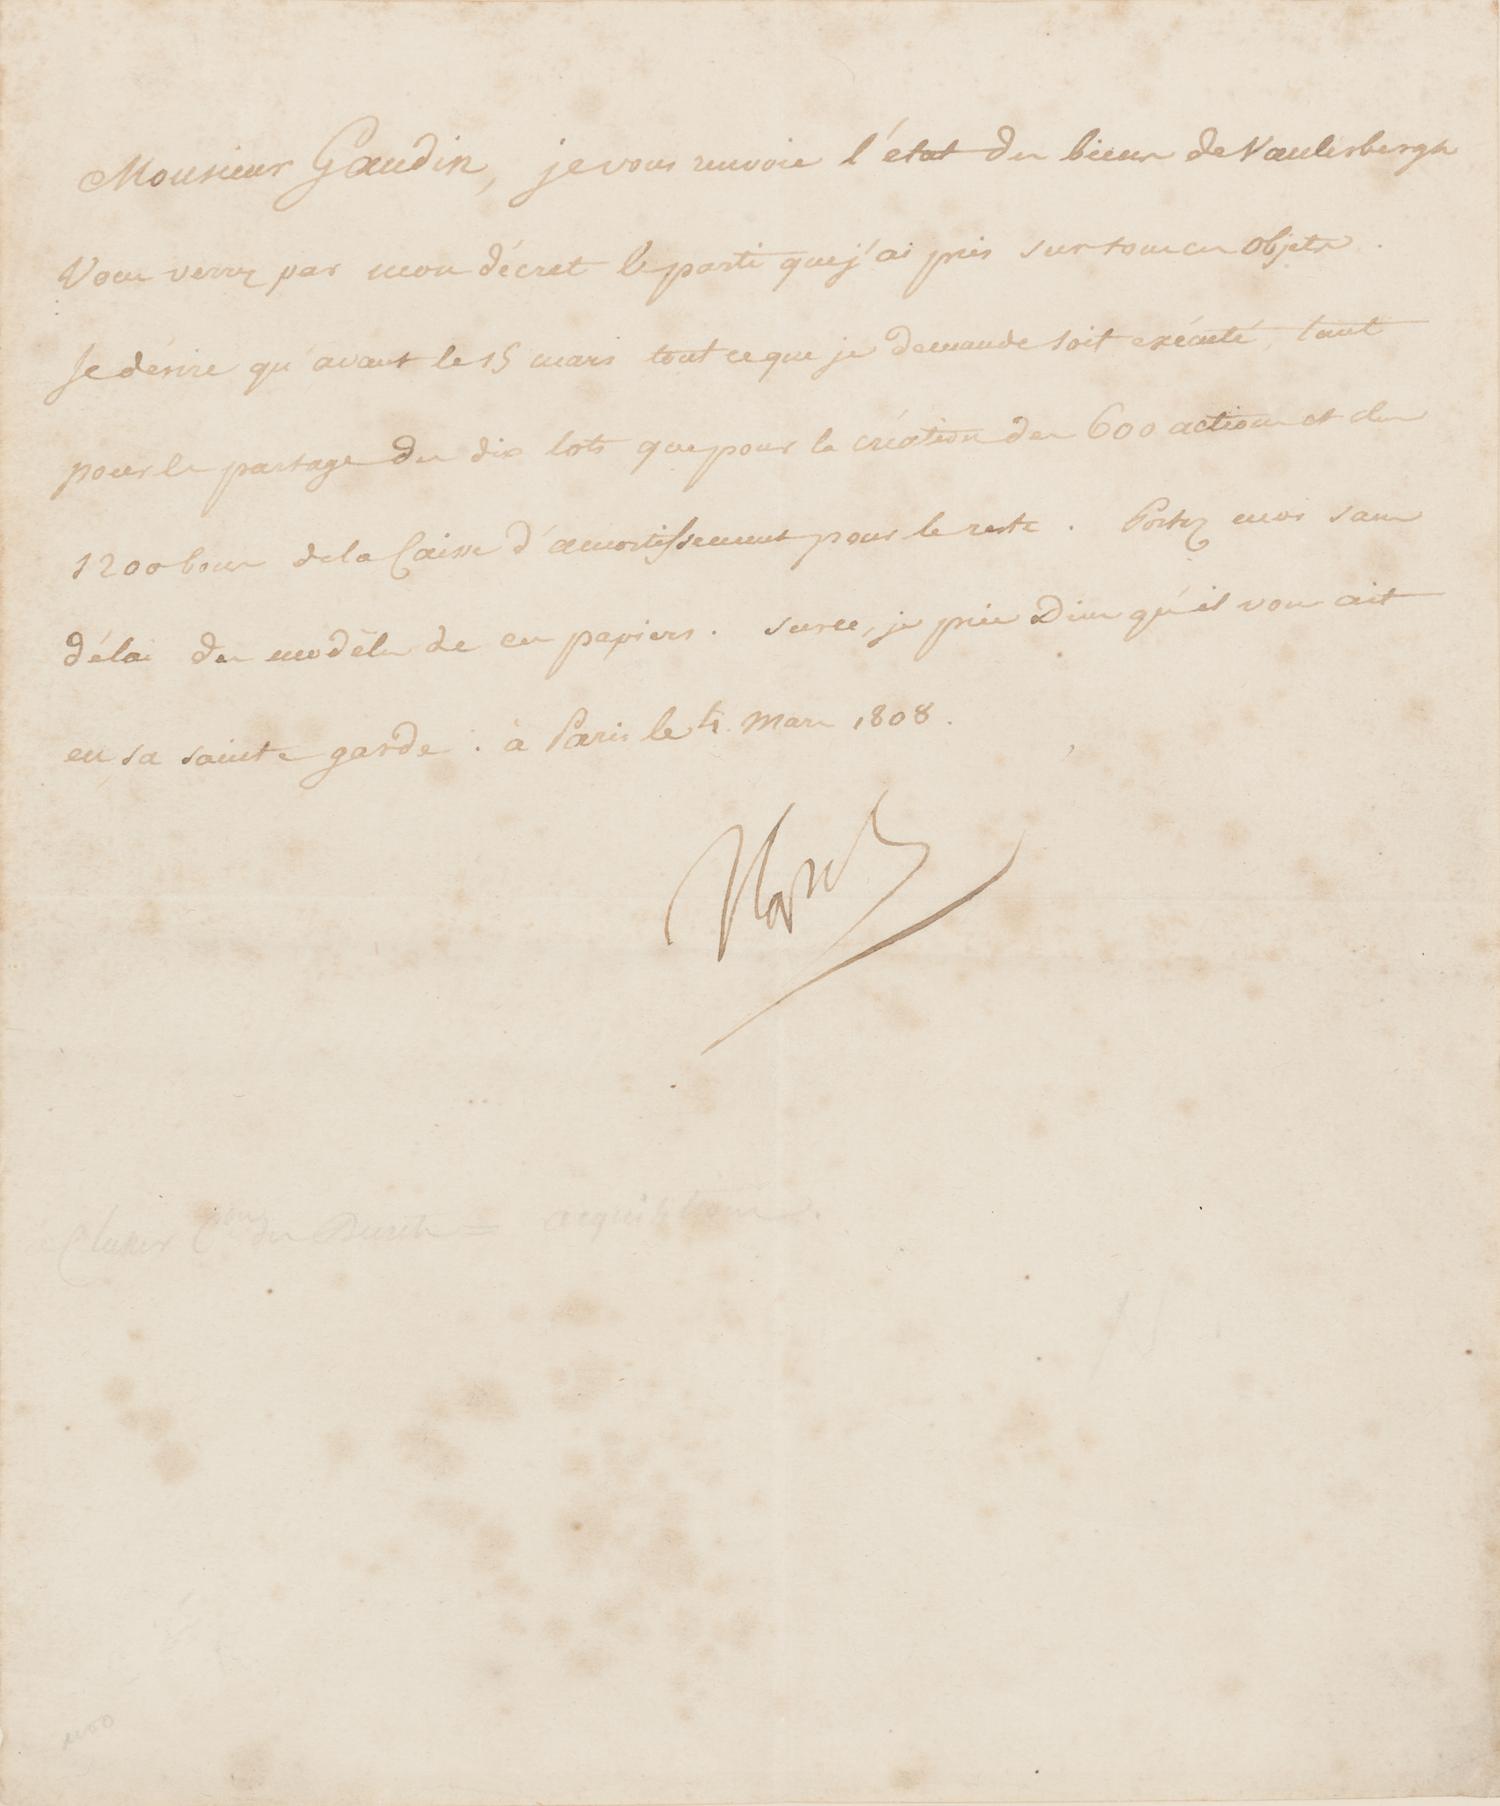 Monsieur Gaudin, je vous renvoie l'état des biens de Vanlerberghe
Vous verrez par mon décret le parti que j'ai pris sur tous ces objets.
Je désire qu'avant le 15 mars tout ce que je demande soit exécuté, tant
pour le partage des dix lots que pour la création des 600 actions et des
1200 bons de la Caisse d'amortissement pour le reste. Portez moi sans
délai des modèles de ces papiers. Sur ce, je prie Dieu qu'il vous ait
en sa sainte garde. à Paris le 4 Mars 1808.
Nap
acquisitions.